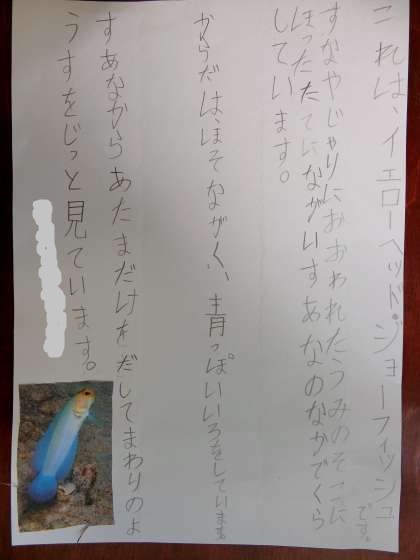 これは、イエローヘッド・ジョーフィッシュです。
すなやじゃりにおおわれたうみのそこに
ほったたてにながいすあなのなかでくら
しています。
からだは、ほそながく、青っぽいいろをしています。
すあなからあたまだけをだしてまわりのよ
うすをじっと見ています。